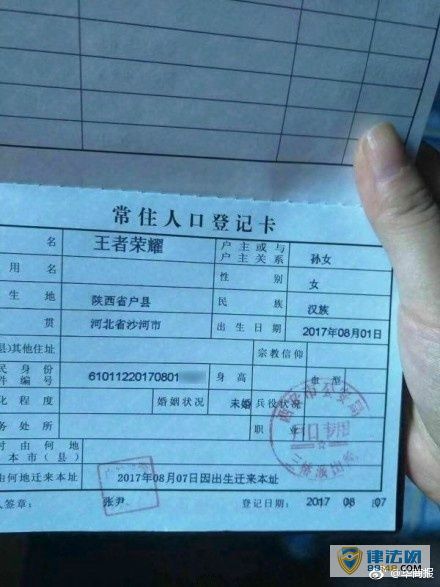 常住人口登记卡
名 王者荣耀 户主或与户主关系 孙女
用名 性别 女
生地 陕西省户县 民族 汉族
贯 河北省沙河市 出生日期 2017年08月01日
县)其他住址 宗教信仰
民身份件编号 61011220170801 身高 血型
化程度 婚姻状况 未婚 兵役状况
务处所 职业
时由何地本市(县)
由何地迁来本址 2017年08月07日因出生迁来本址
人签章: 张尹 登记日期: 2017 08 07
律法网
0s148.com
@华商报